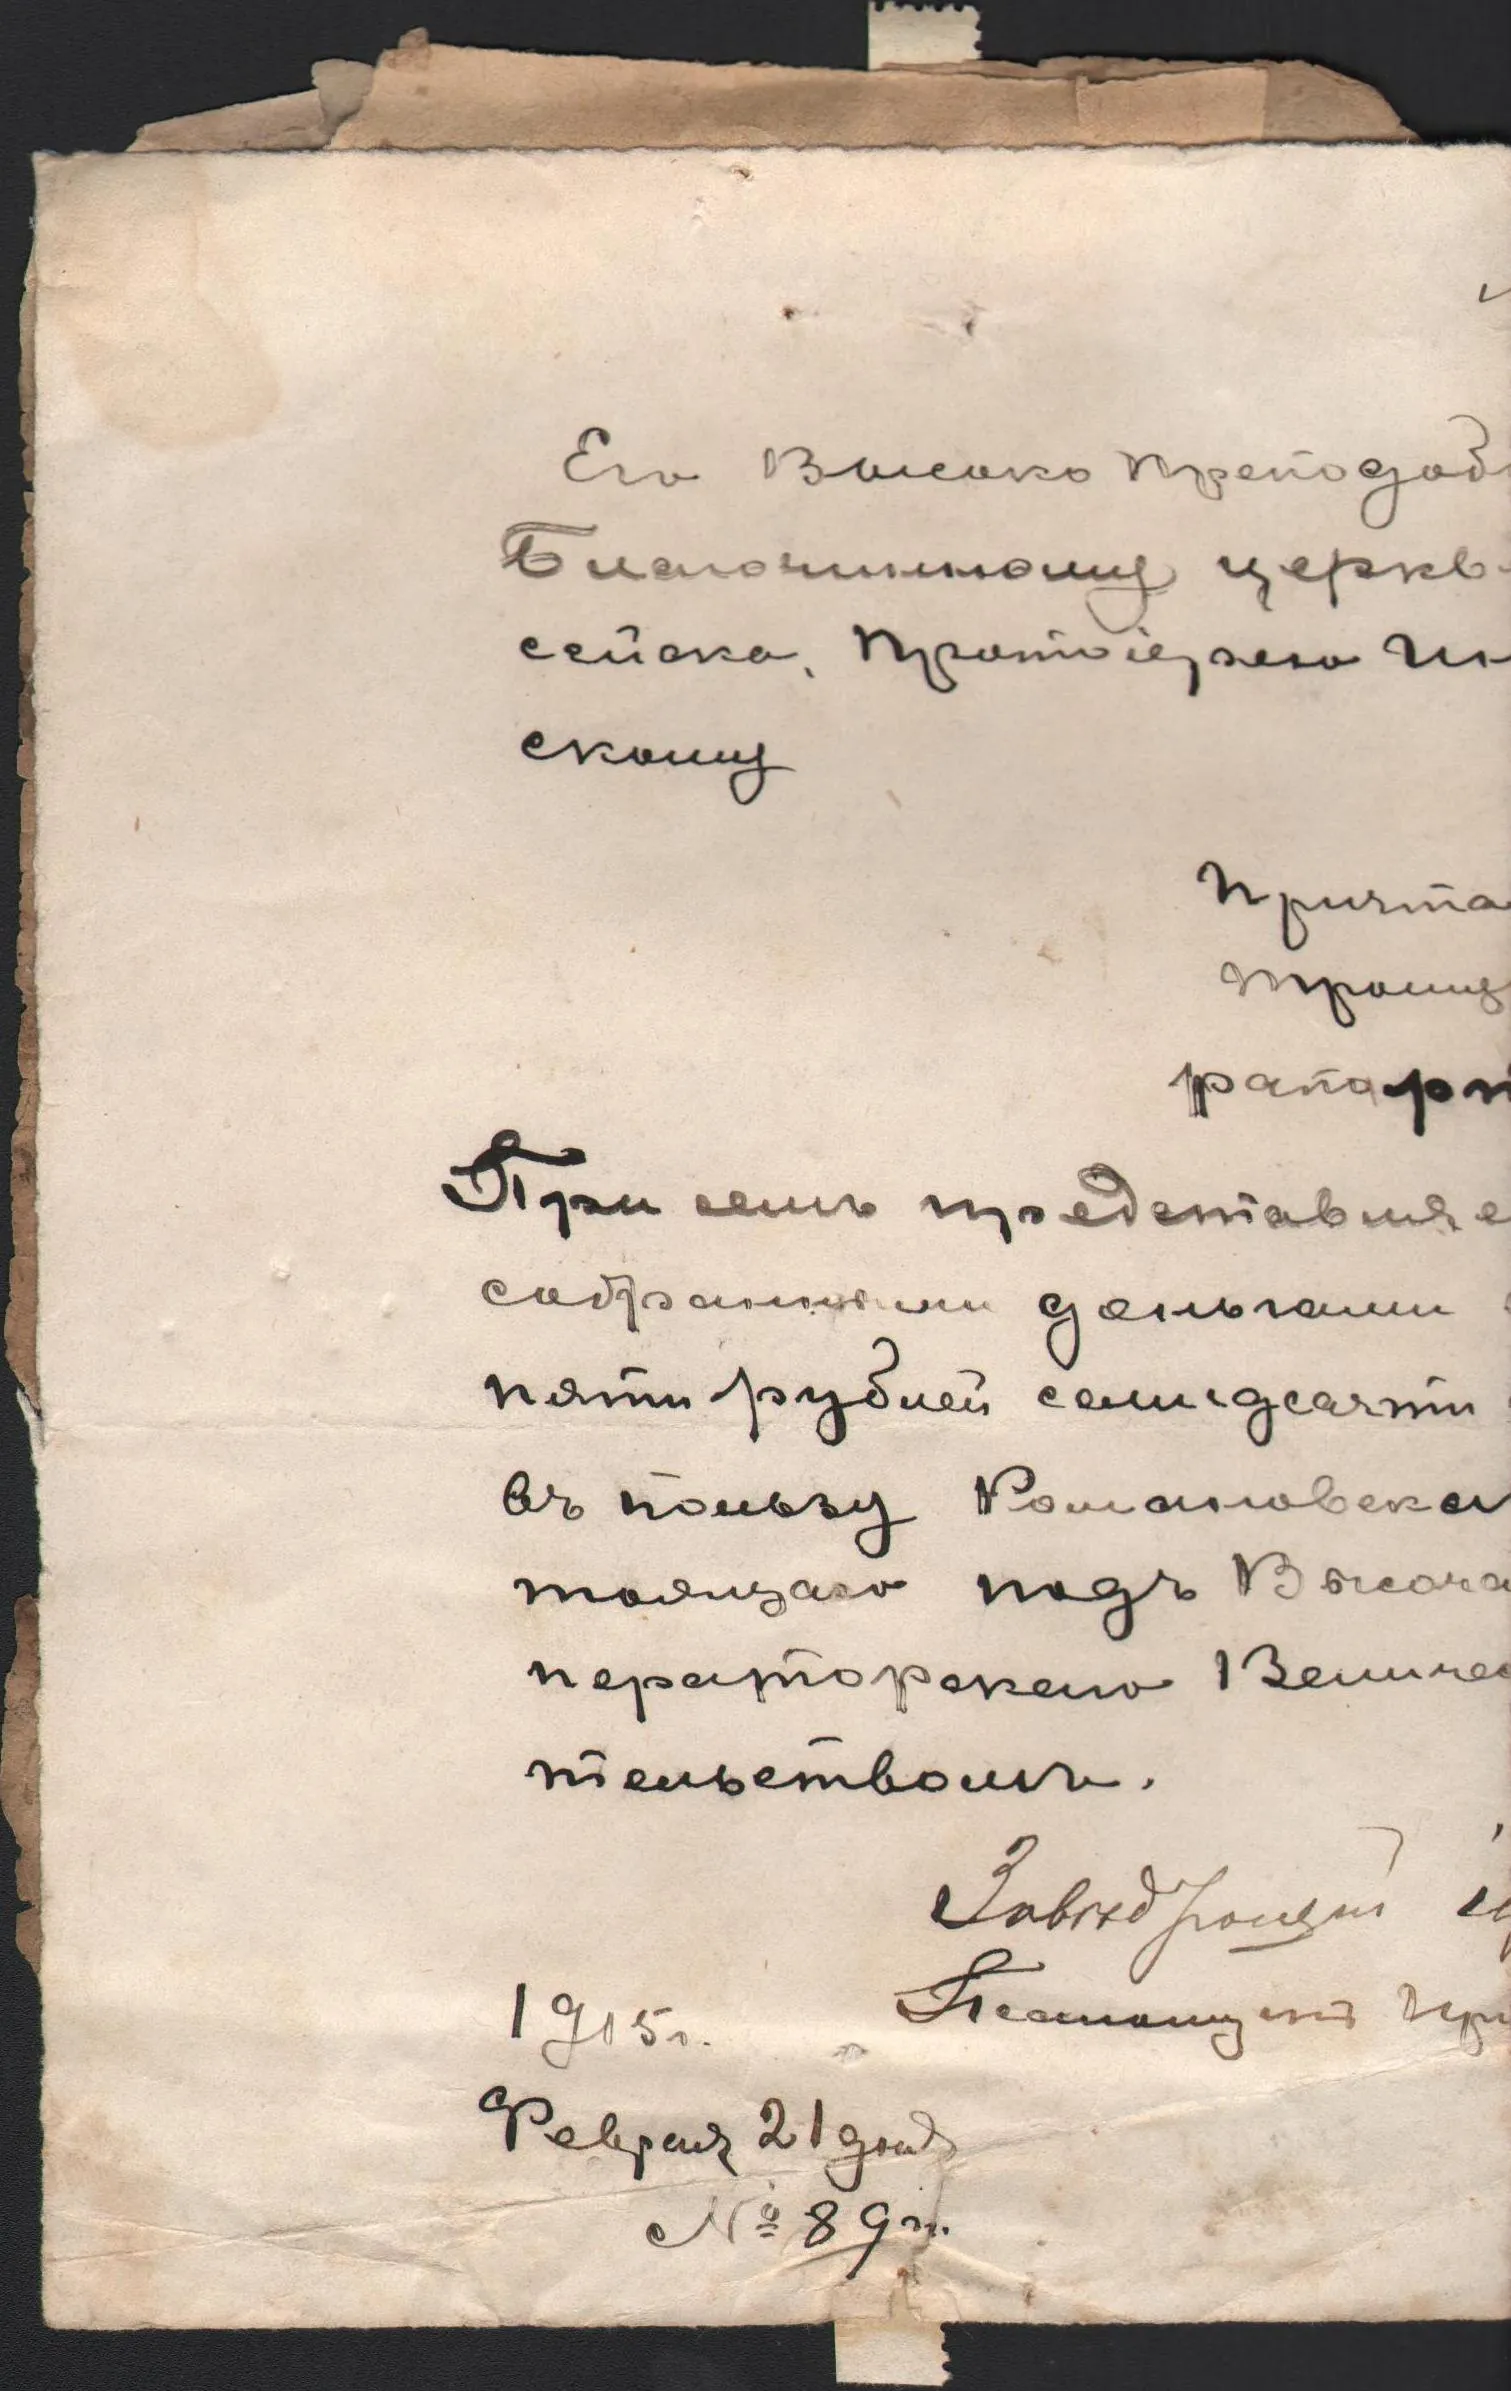 Его Высоко Преподоб
Благочинному церкв
сейска, Протоіерею Ин
скому
Причта
Троиц
рапорт
При семъ представляе
собранными деньгами
пяти рублей семидесяти
въ пользу Романовска
тоящаго подъ Высоча
ператорскаго Величес
тельствомъ.
Завѣдующій
Псаломщикъ
1915 г.
Февраля 21 дня
№ 89